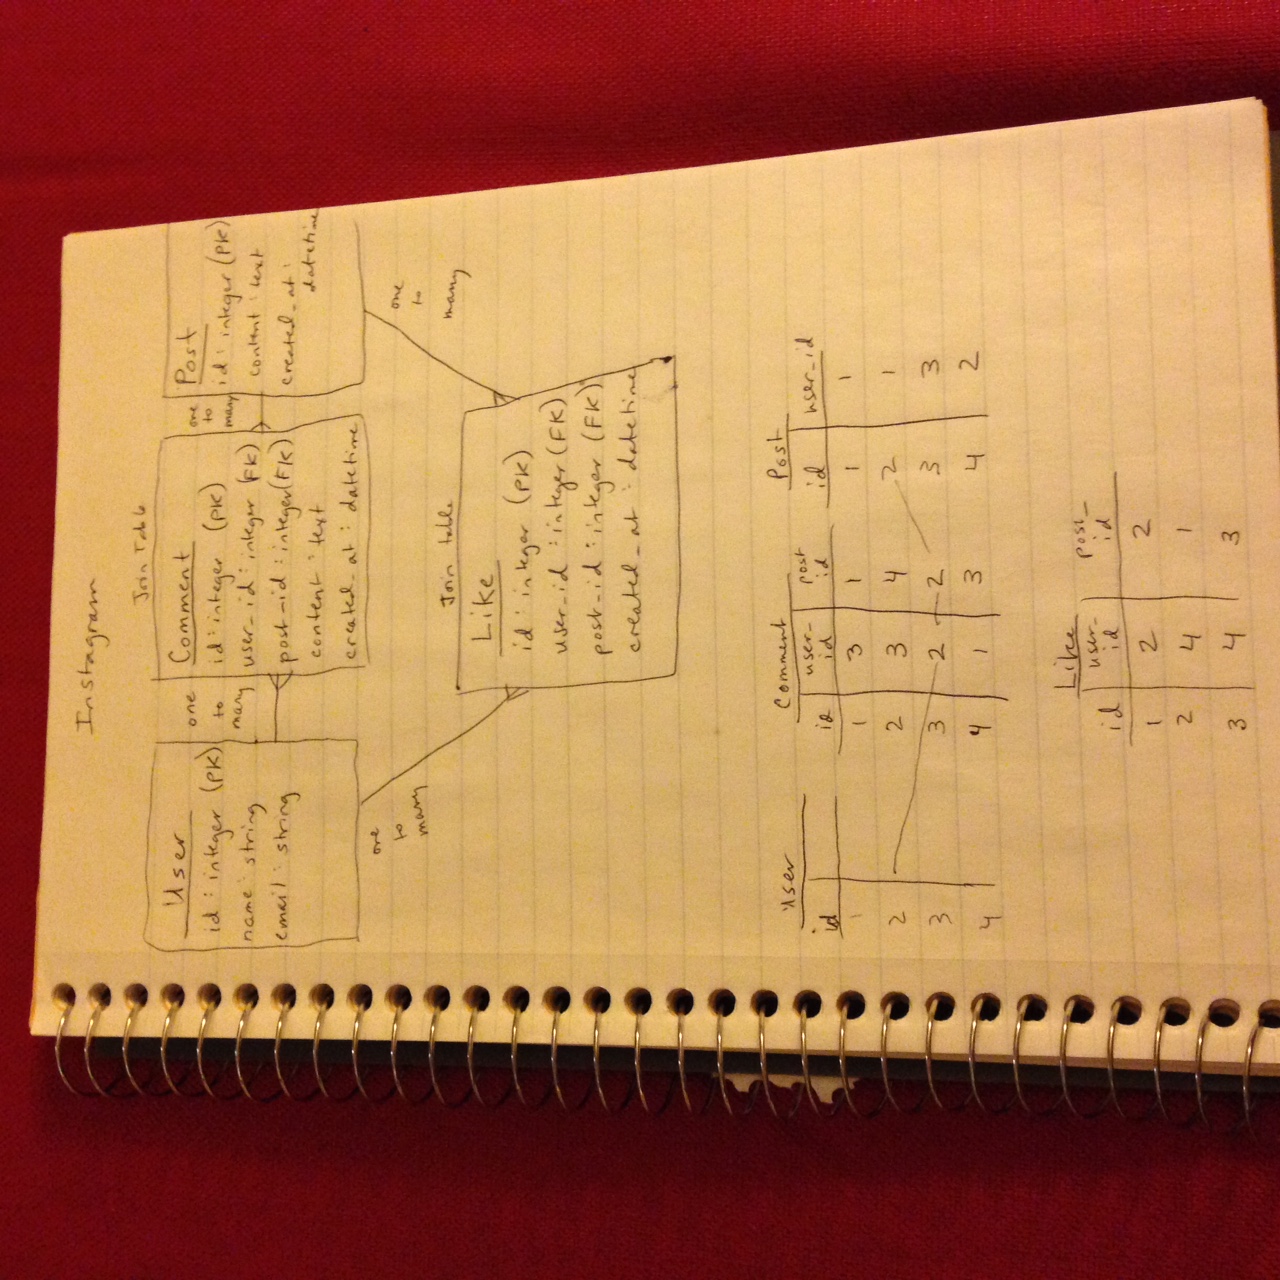 Instagram
User
id : integer (PK)
name : string
email : string
one
to
many
Join Table
Comment
id : integer (PK)
user_id : integer (FK)
post_id : integer (FK)
content : text
created_at : datetime
one
to
many
Post
id : integer (PK)
content : text
created_at :
datetime
one
to
many
one
to
many
Join table
Like
id : integer (PK)
user_id : integer (FK)
post_id : integer (FK)
created_at : datetime
User
id
1
2
3
4
Comment
id user_id post id
1 3 1
2 3 4
3 2 2
4 1 3
Post
id user_id
1 1
2 1
3 3
4 2
Like
id user_id post_id
1 2 2
2 4 1
3 4 3